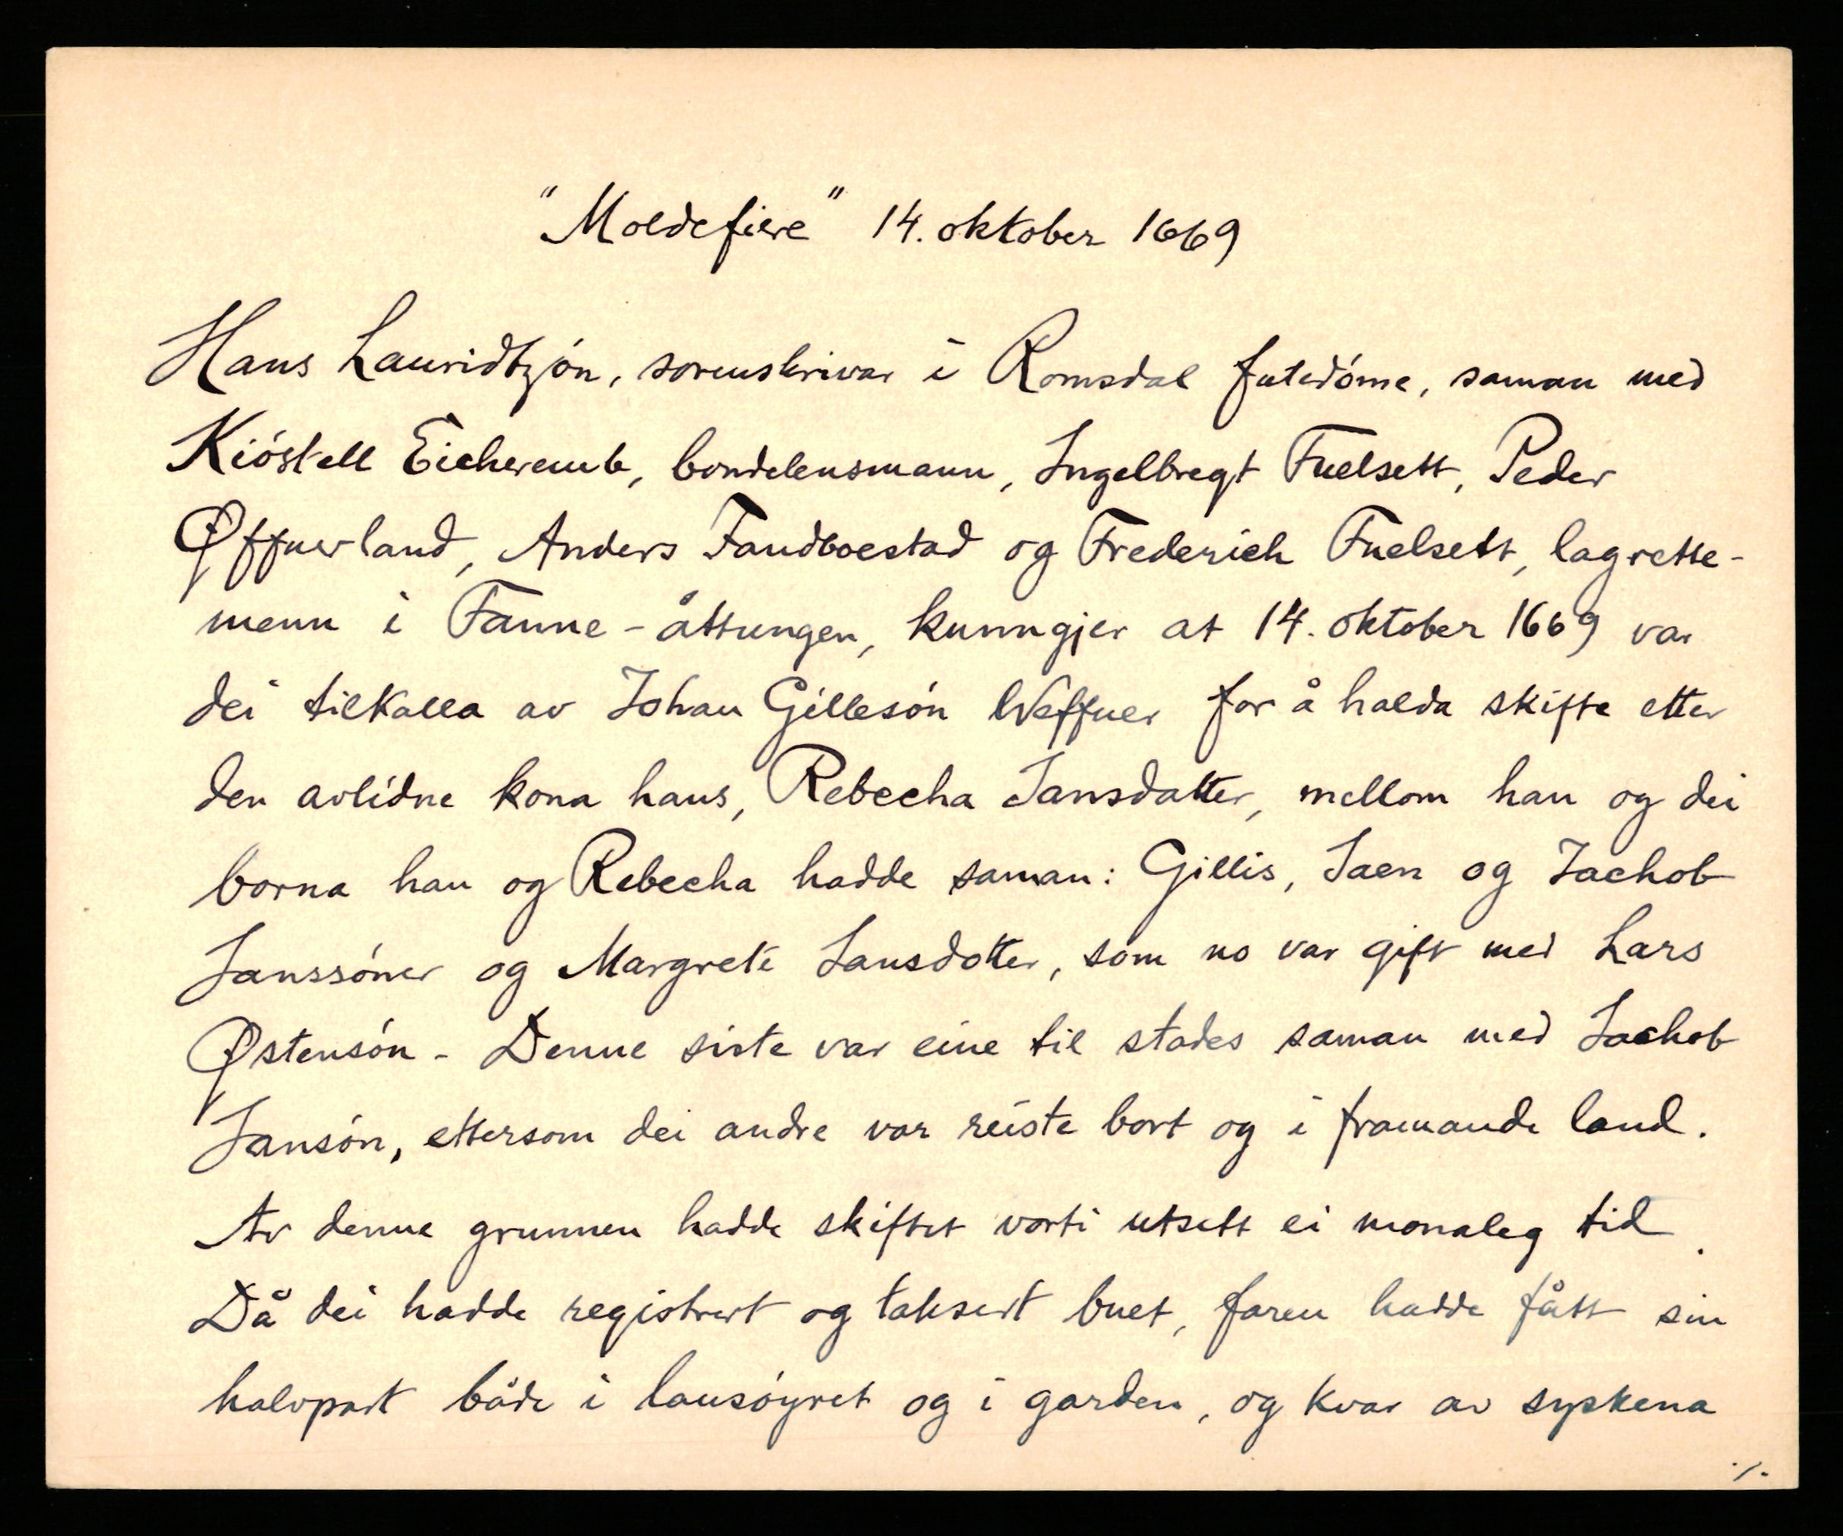 "Moldefiere" 14. oktober 1669
Hans Lauridtzsón, sorenskrivar i Romsdal futedóme, saman med
Kióstell Eicheremb, bondelensmann, Ingelbregt Fuelsett, Peder
Øffuerland, Anders Fandboestad og Frederich Fuelsett, lagrette-
menn i Fanne-åttungen, kunngjer at 14. oktober 1669 var
dei tilkalla av Johan Gillesón Weffuer for å halda skifte etter
den avlidne kona hans, Rebecha Jansdatter, mellom han og dei
borna han og Rebecha hadde saman: Gillis, Jaen og Jachob
Janssóner og Margrete Jansdotter, som no var gift med Lars
Østensón - Denne siste var eine til stades saman med Jachob
Jansón, ettersom dei andre var reiste bort og i framande land.
Av denne grunnen hadde skiftet vorti utsett ei monaleg tid.
Då dei hadde registrert og taksert buet, faren hadde fått sin
halvpart både i lausóyret og i garden, og kvar av syskena
./.